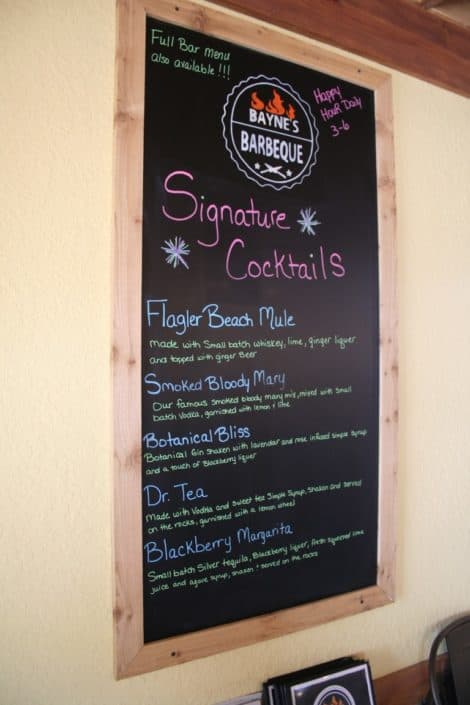 Full Bar menu
also available!!!
Happy
Hour Daily
3-6
BAYNE'S
BARBEQUE
Signature
Cocktails
Flagler Beach Mule
made with Small batch whiskey, lime, ginger liquer
and topped with ginger Beer
Smoked Bloody Mary
Our famous smoked bloody mary mix, mixed with small
batch Vodka, garnished with lemon + lime
Botanical Bliss
Botanical Gin shaken with lavendar and rose infused simple syrup
and a touch of Blackberry liquer
Dr. Tea
Made with Vodka and sweet tea Simple Syrup, shaken and served
on the rocks, garnished with a lemon wheel
Blackberry Margarita
Small batch Silver tequila, Blackberry liquer, fresh squeezed lime
juice and agave syrup, shaken + served on the rocks